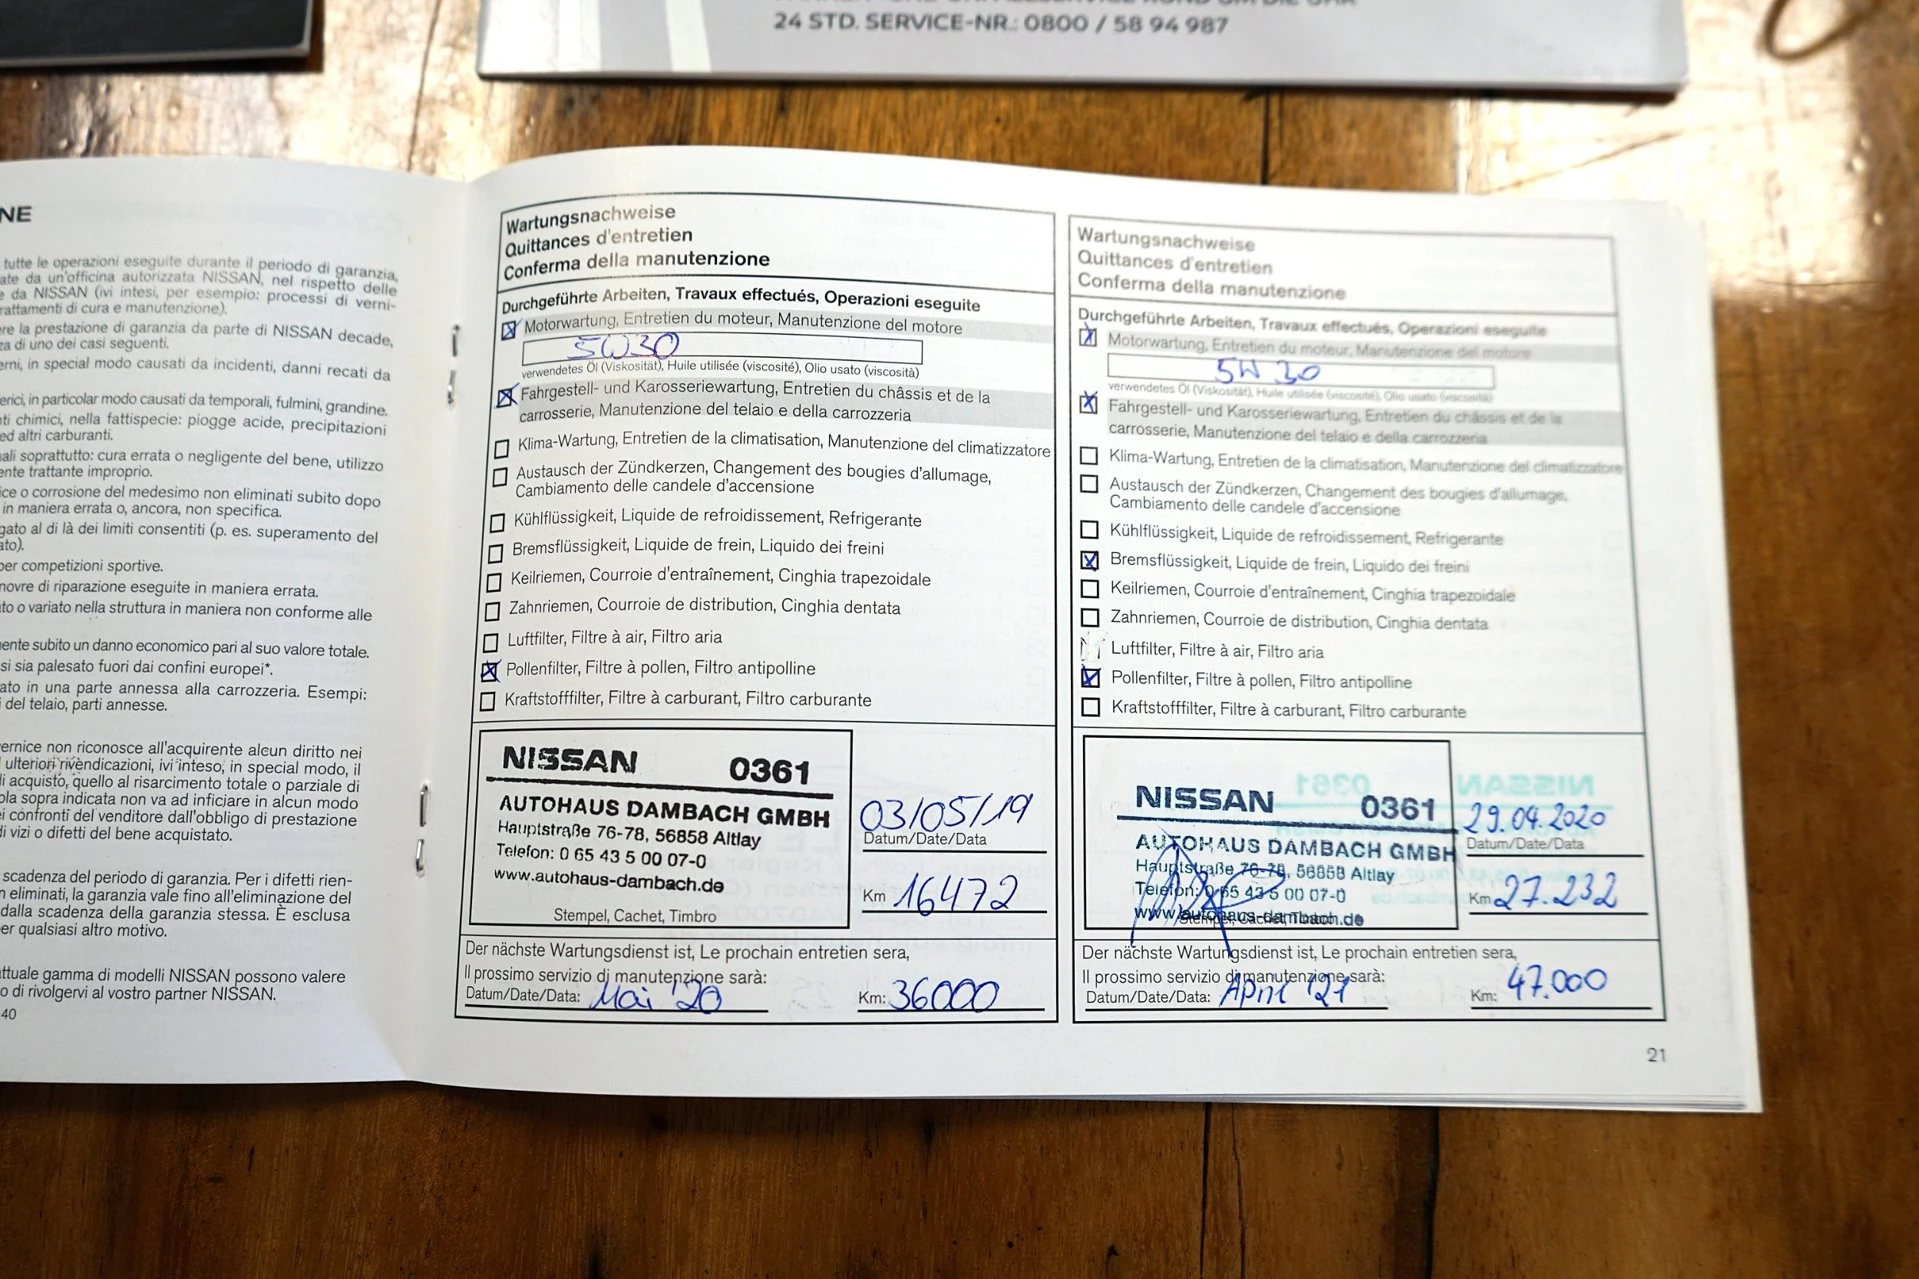 24 STD. SERVICE-NR.: 0800 / 58 94 987
NE
tutte le operazioni eseguite durante il periodo di garanzia,
ate da un'officina autorizzata NISSAN, nel rispetto delle
e da NISSAN (ivi intesi, per esempio: processi di verni-
rattamenti di cura e manutenzione).
ere la prestazione di garanzia da parte di NISSAN decade,
za di uno dei casi seguenti.
erni, in special modo causati da incidenti, danni recati da
erici, in particolar modo causati da temporali, fulmini, grandine.
ti chimici, nella fattispecie: piogge acide, precipitazioni
ed altri carburanti.
ali soprattutto: cura errata o negligente del bene, utilizzo
ente trattante improprio.
ice o corrosione del medesimo non eliminati subito dopo
in maniera errata o, ancora, non specifica.
gato al di là dei limiti consentiti (p. es. superamento del
ato).
per competizioni sportive.
novre di riparazione eseguite in maniera errata.
to o variato nella struttura in maniera non conforme alle
mente subito un danno economico pari al suo valore totale.
si sia palesato fuori dai confini europei*.
ato in una parte annessa alla carrozzeria. Esempi:
del telaio, parti annesse.
ernice non riconosce all'acquirente alcun diritto nei
ulteriori rivendicazioni, ivi inteso, in special modo, il
di acquisto, quello al risarcimento totale o parziale di
ola sopra indicata non va ad inficiare in alcun modo
ei confronti del venditore dall'obbligo di prestazione
di vizi o difetti del bene acquistato.
scadenza del periodo di garanzia. Per i difetti rien-
n eliminati, la garanzia vale fino all'eliminazione del
dalla scadenza della garanzia stessa. È esclusa
er qualsiasi altro motivo.
attuale gamma di modelli NISSAN possono valere
o di rivolgervi al vostro partner NISSAN.
40
Wartungsnachweise
Quittances d'entretien
Conferma della manutenzione
Durchgeführte Arbeiten, Travaux effectués, Operazioni eseguite
Motorwartung, Entretien du moteur, Manutenzione del motore
5W30
verwendetes Öl (Viskosität), Huile utilisée (viscosité), Olio usato (viscosità)
Fahrgestell- und Karosseriewartung, Entretien du châssis et de la
carrosserie, Manutenzione del telaio e della carrozzeria
Klima-Wartung, Entretien de la climatisation, Manutenzione del climatizzatore
Austausch der Zündkerzen, Changement des bougies d'allumage,
Cambiamento delle candele d'accensione
Kühlflüssigkeit, Liquide de refroidissement, Refrigerante
Bremsflüssigkeit, Liquide de frein, Liquido dei freini
Keilriemen, Courroie d'entraînement, Cinghia trapezoidale
Zahnriemen, Courroie de distribution, Cinghia dentata
Luftfilter, Filtre à air, Filtro aria
Pollenfilter, Filtre à pollen, Filtro antipolline
Kraftstofffilter, Filtre à carburant, Filtro carburante
NISSAN 0361
AUTOHAUS DAMBACH GMBH
Hauptstraße 76-78, 56858 Altlay
Telefon: 0 65 43 5 00 07-0
www.autohaus-dambach.de
Stempel, Cachet, Timbro
03/05/19
Datum/Date/Data
Km 16472
Der nächste Wartungsdienst ist, Le prochain entretien sera,
Il prossimo servizio di manutenzione sarà:
Datum/Date/Data: Mai '20 Km: 36000
Wartungsnachweise
Quittances d'entretien
Conferma della manutenzione
Durchgeführte Arbeiten, Travaux effectués, Operazioni eseguite
Motorwartung, Entretien du moteur, Manutenzione del motore
5W30
verwendetes Öl (Viskosität), Huile utilisée (viscosité), Olio usato (viscosità)
Fahrgestell- und Karosseriewartung, Entretien du châssis et de la
carrosserie, Manutenzione del telaio e della carrozzeria
Klima-Wartung, Entretien de la climatisation, Manutenzione del climatizzatore
Austausch der Zündkerzen, Changement des bougies d'allumage,
Cambiamento delle candele d'accensione
Kühlflüssigkeit, Liquide de refroidissement, Refrigerante
Bremsflüssigkeit, Liquide de frein, Liquido dei freini
Keilriemen, Courroie d'entraînement, Cinghia trapezoidale
Zahnriemen, Courroie de distribution, Cinghia dentata
Luftfilter, Filtre à air, Filtro aria
Pollenfilter, Filtre à pollen, Filtro antipolline
Kraftstofffilter, Filtre à carburant, Filtro carburante
NISSAN 0361
AUTOHAUS DAMBACH GMBH
Hauptstraße 76-78, 56858 Altlay
Telefon: 0 65 43 5 00 07-0
www.autohaus-dambach.de
Stempel, Cachet, Timbro
29.04.2020
Datum/Date/Data
Km 27.232
Der nächste Wartungsdienst ist, Le prochain entretien sera,
Il prossimo servizio di manutenzione sarà:
Datum/Date/Data: April '21 Km: 47.000
21